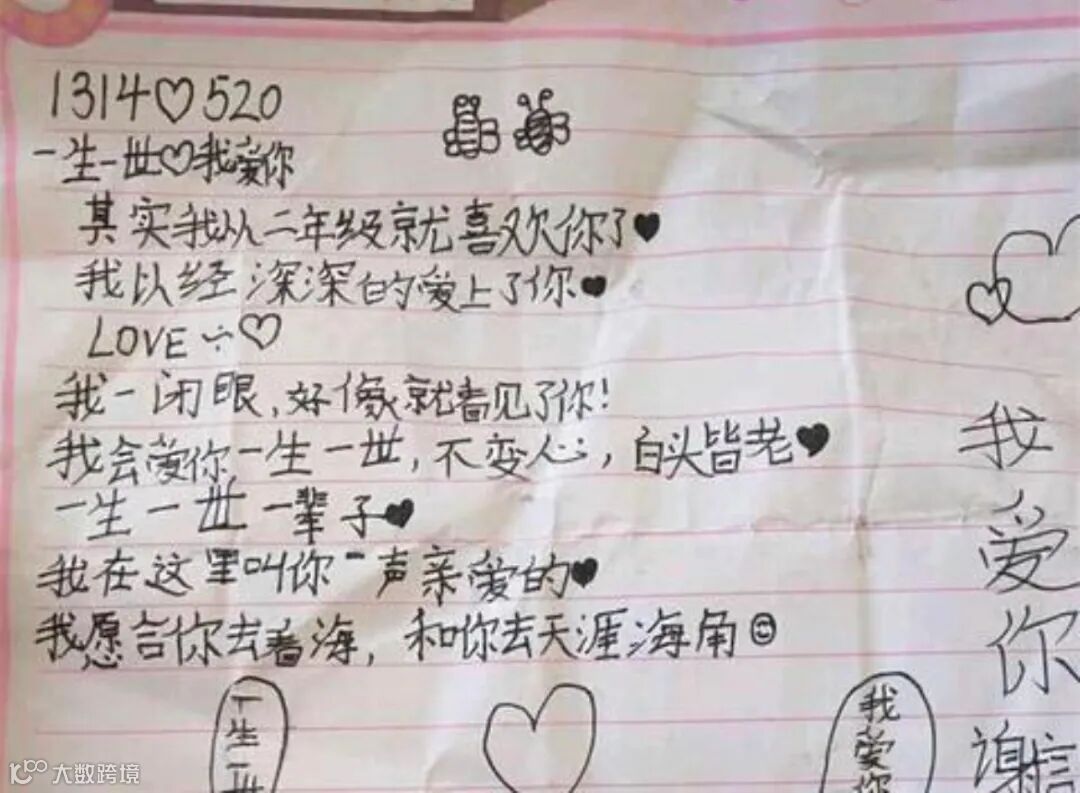 1314♡520
一生一世♡我爱你
其实我从二年级就喜欢你了♥
我以经深深的爱上了你♥
LOVE ÷♡
我一闭眼,好像就看见了你!
我会爱你一生一世,不变心,白头皆老♥
一生一世一辈子♥
我在这里叫你一声亲爱的♥
我愿言你去看海,和你去天涯海角☺
一生一世
我爱你
我爱你
大数跨境